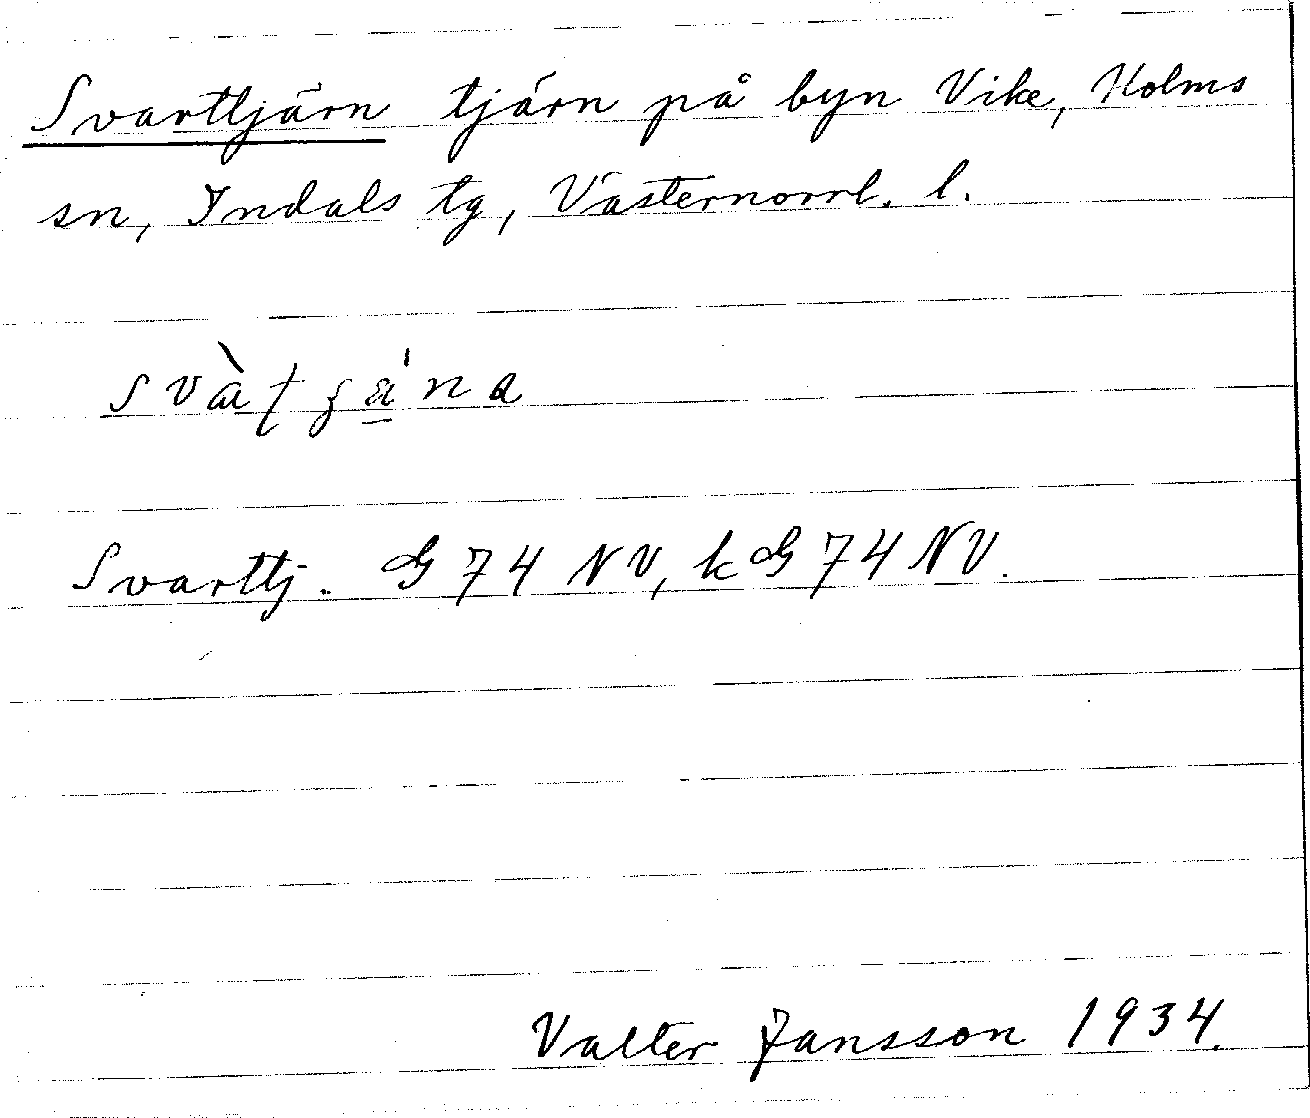 Svarttjärn tjärn på byn Vike, Holms
sn, Indals tg, Västernorrl. l.
Svarttj. G 74 NV, k G 74 NV.
Valter Jansson 1934.